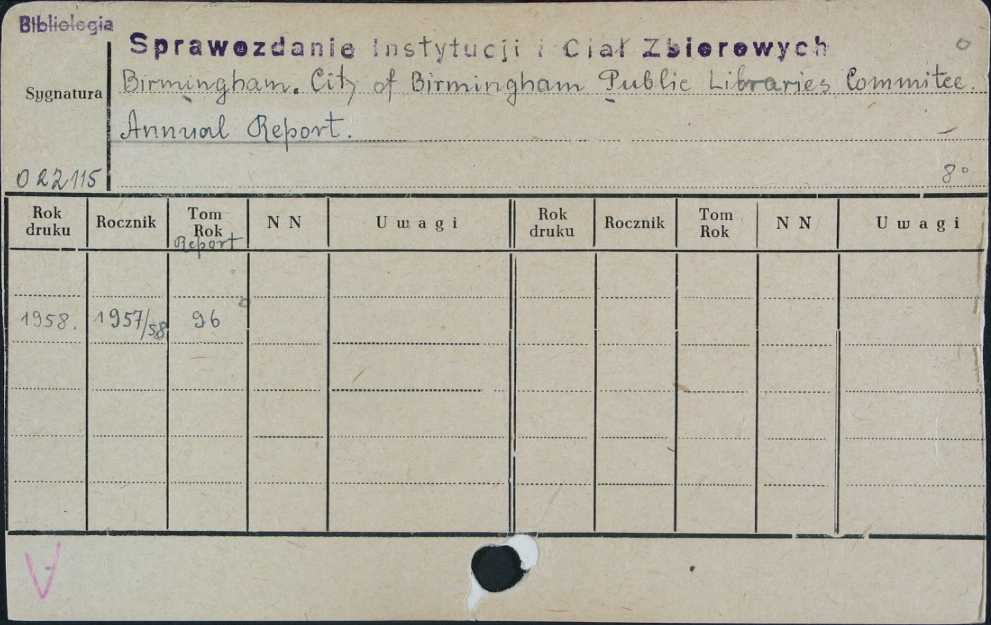 Bibliologia
Sprawozdanie Instytucji i Ciał Zbiorowych
Sygnatura
Birmingham. City of Birmingham Public Libraries Commitee.
Annual Report.
022115
8°
Rok druku Rocznik Tom Rok N N Uwagi Rok druku Rocznik Tom Rok N N Uwagi
Report
1958. 1957/58 96